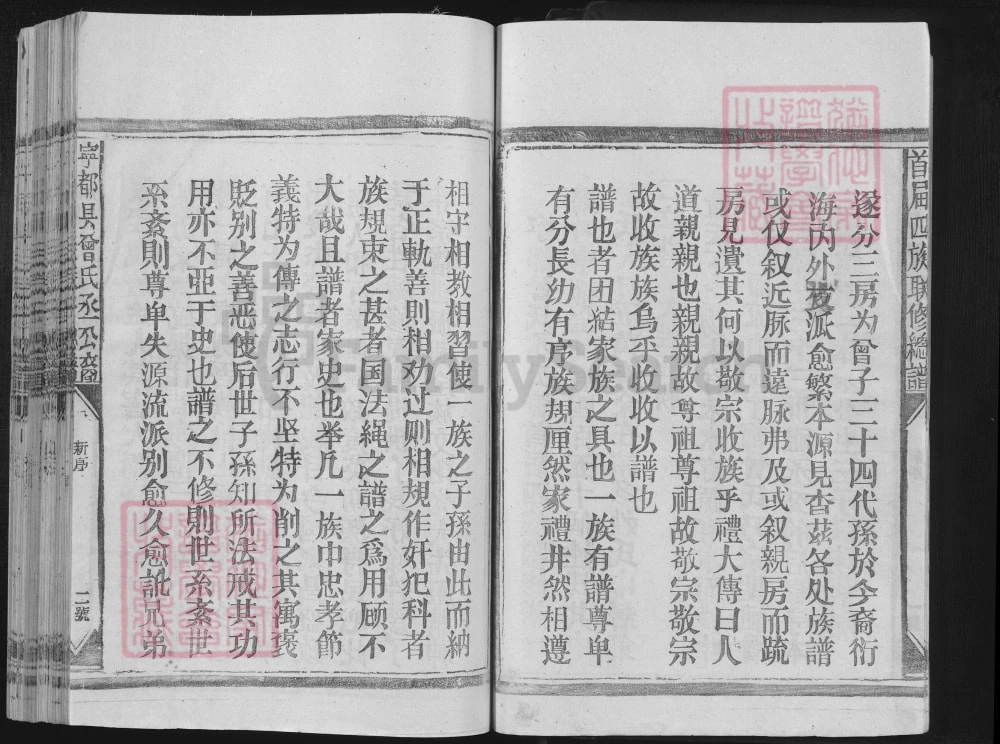 首届四族联修總譜
遂分三房为曾子三十四代孫於今裔衍
海内外枝派愈繁本源見杳茲各处族譜
或仅叙近脉而遠脉弗及或叙親房而疏
房見遺其何以敬宗收族乎禮大傳曰人
道親親也親親故尊祖尊祖故敬宗敬宗
故收族族乌乎收收以譜也
譜也者团結家族之具也一族有譜尊卑
有分長幼有序族規厘然家禮井然相遵
相守相教相習使一族之子孫由此而納
于正軌善則相劝过則相規作奸犯科者
族規束之甚者国法繩之譜之爲用顾不
大哉且譜者家史也举凡一族中忠孝節
義特为傳之志行不坚特为削之其寓褒
貶别之善恶使后世子孫知所法戒其功
用亦不亚于史也譜之不修則世系紊世
系紊則尊卑失源流派别愈久愈訛兄弟
寧都县曾氏丞公裔
新序
二號
FamilySearch